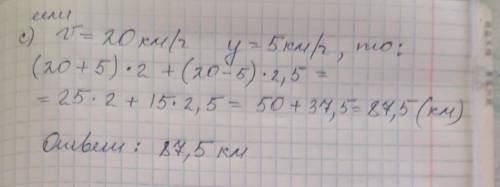 если
c) v = 20 км/ч y = 5 км/ч, то:
(20+5)·2 + (20-5)·2,5 =
= 25·2 + 15·2,5 = 50 + 37,5 = 87,5 (км)
Ответ: 87,5 км